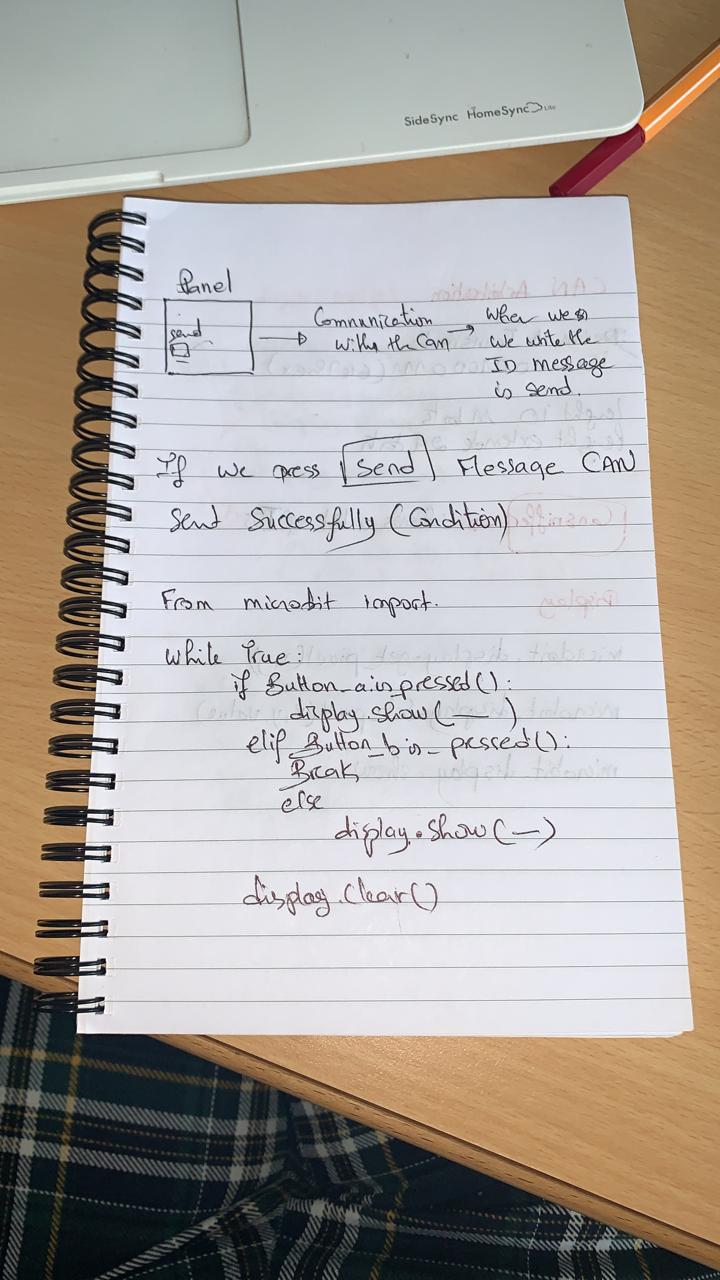 SideSync HomeSync Lite
Panel
send
Communication
withy the Can
When we
we write the
ID message
is send.
If we press Send Message CAN
Send Successfully (Condition)
From microbit import.
While True:
if Button_a.is_pressed():
display.show(—)
elif Button_b is_pressed():
Break
else
display.show(—)
display.Clear()